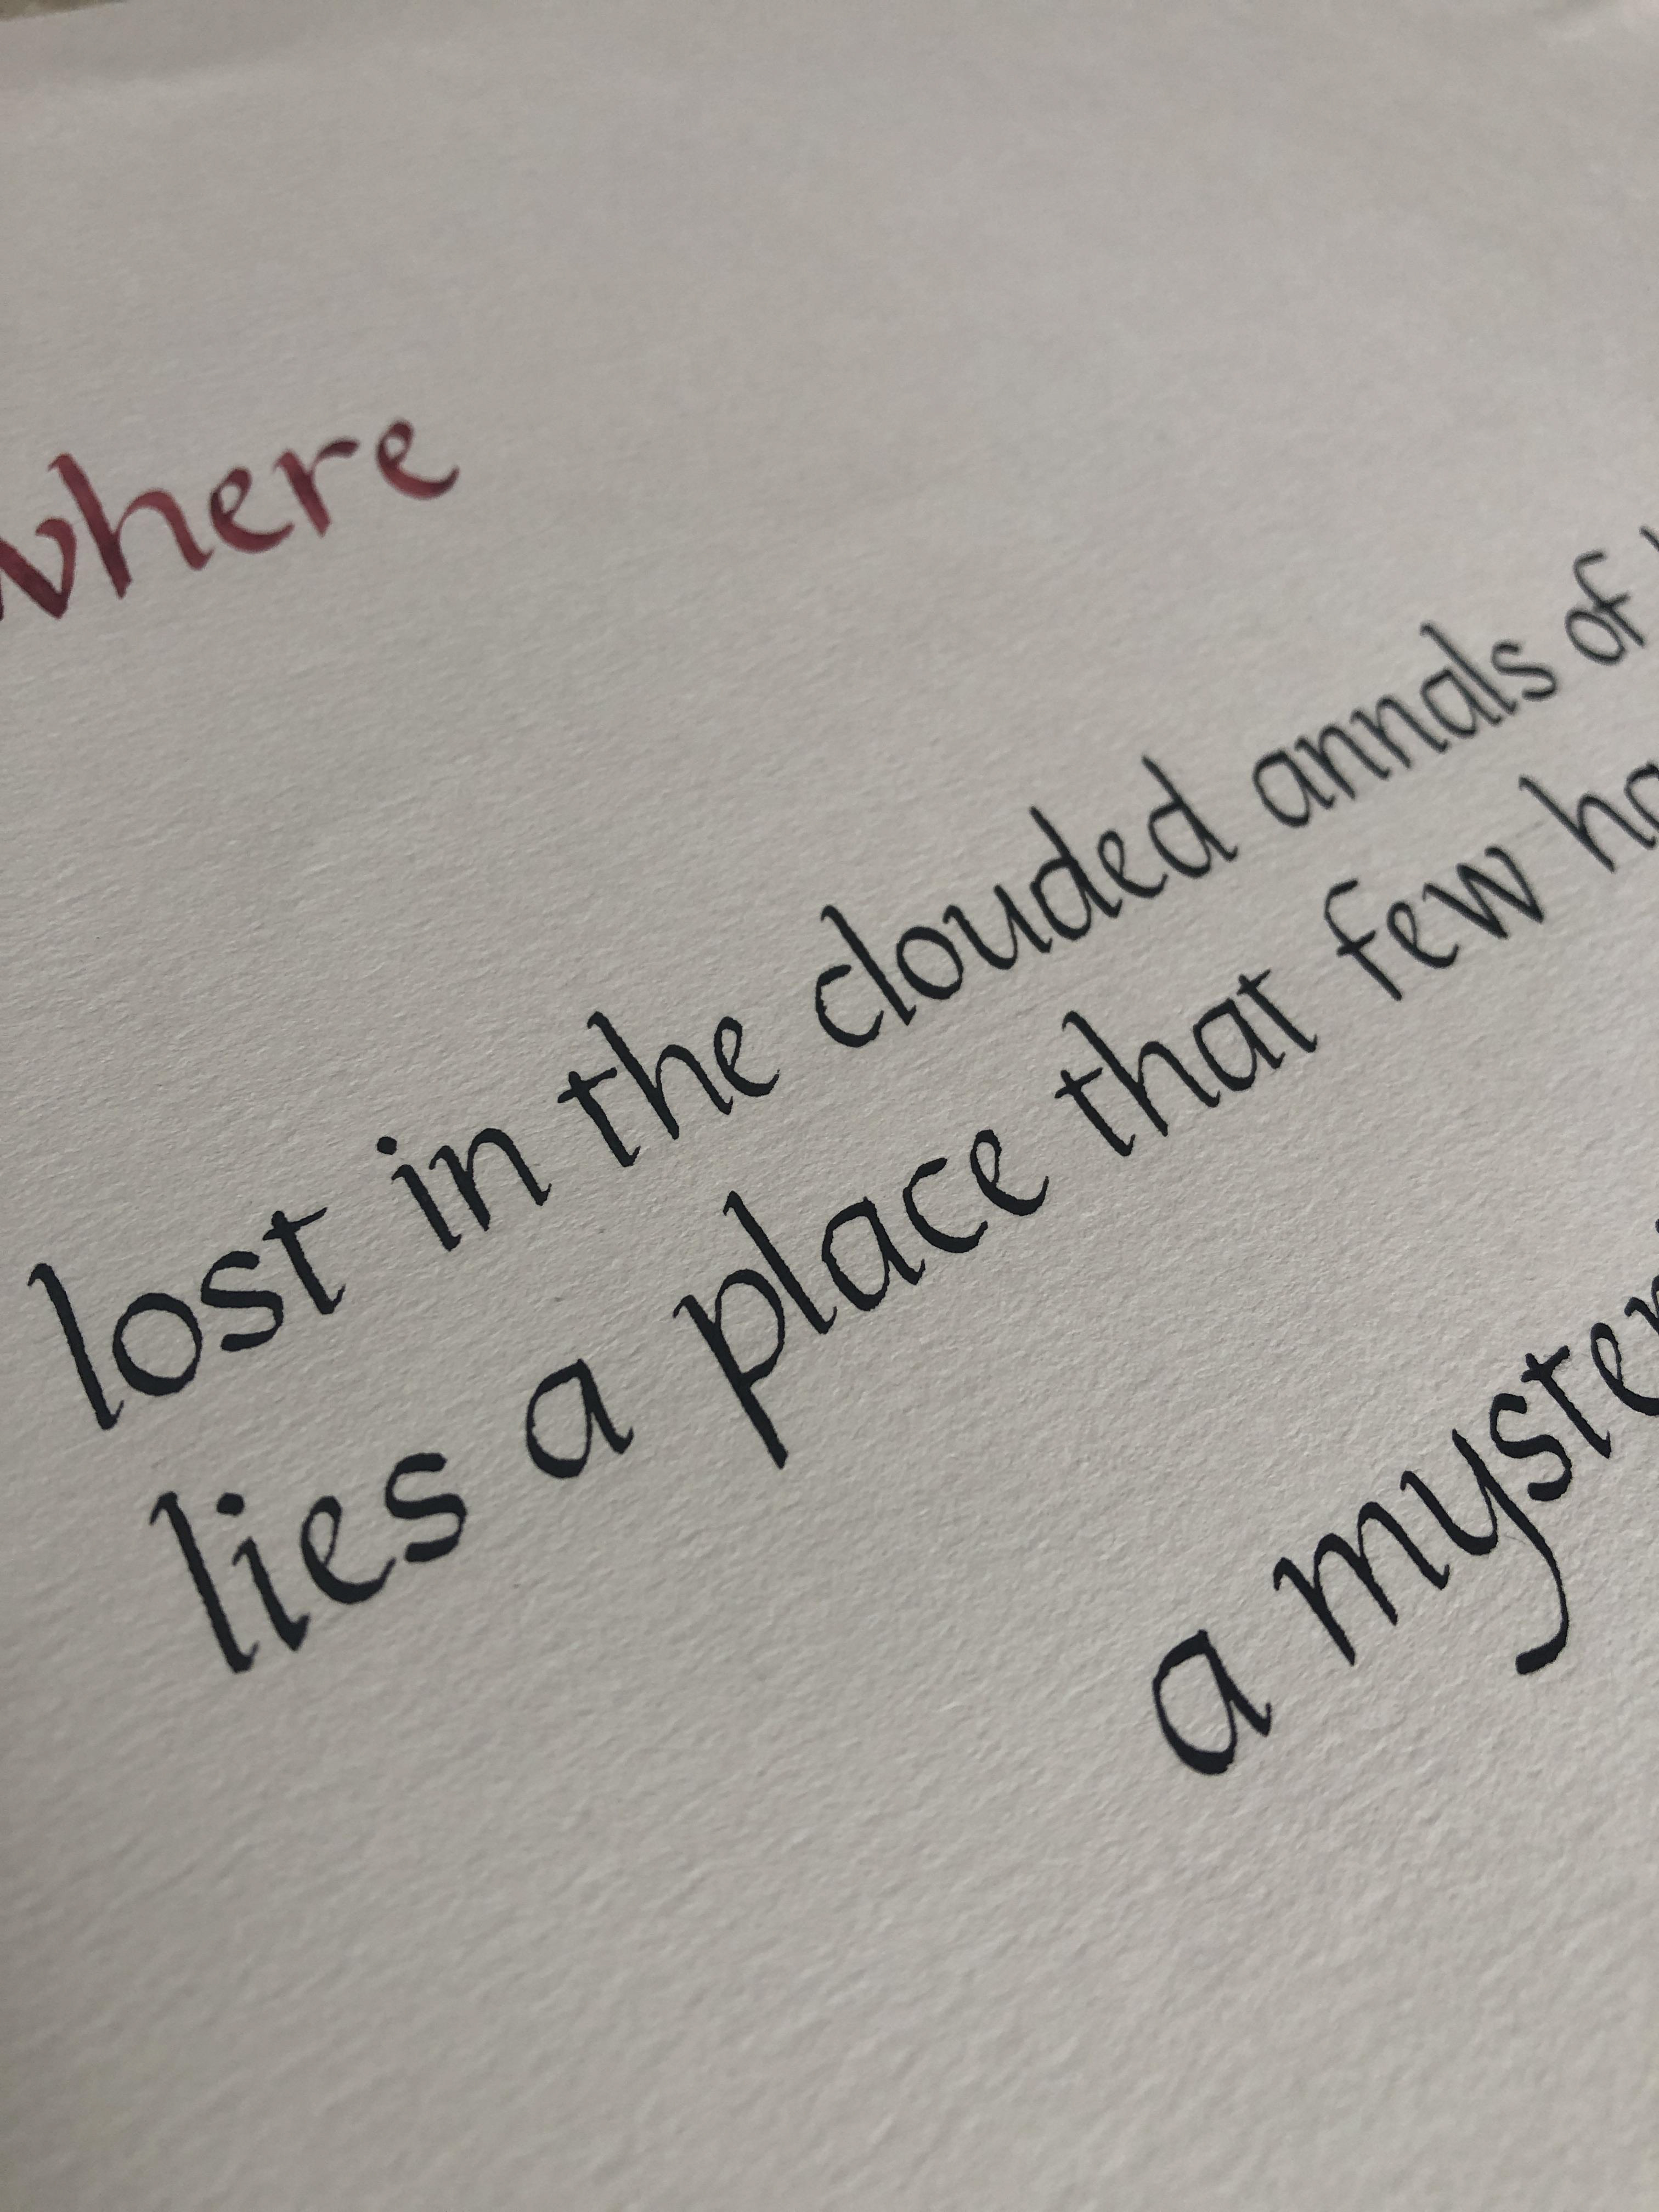 where
lost in the clouded annals of
lies a place that few
a